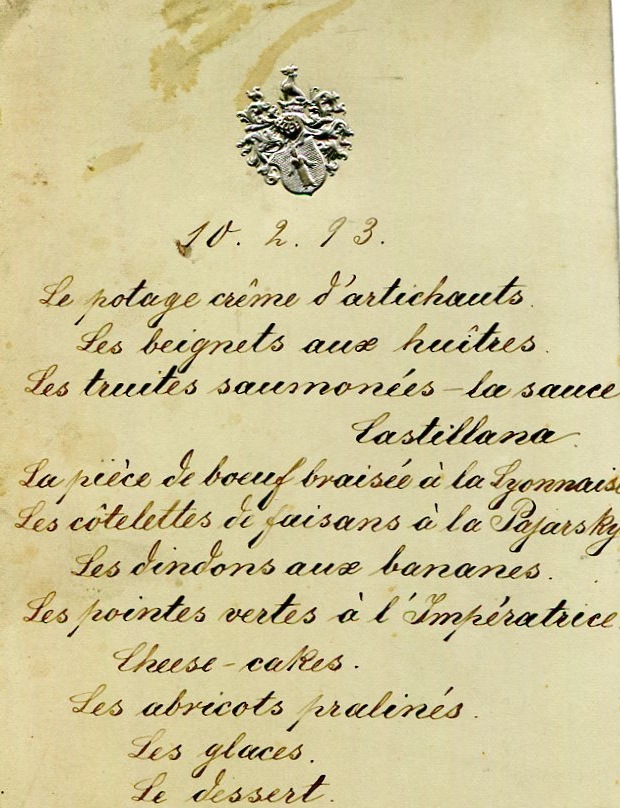 10. 2. 93.
Le potage crême d'artichauts.
Les beignets aux huîtres.
Les truites saumonées - la sauce
Castillana.
La pièce de boeuf braisée à la Lyonnaise
Les côtelettes de faisans à la Pajarsky
Les dindons aux bananes.
Les pointes vertes à l'Impératrice.
Cheese-cakes.
Les abricots pralinés.
Les glaces.
Le dessert.